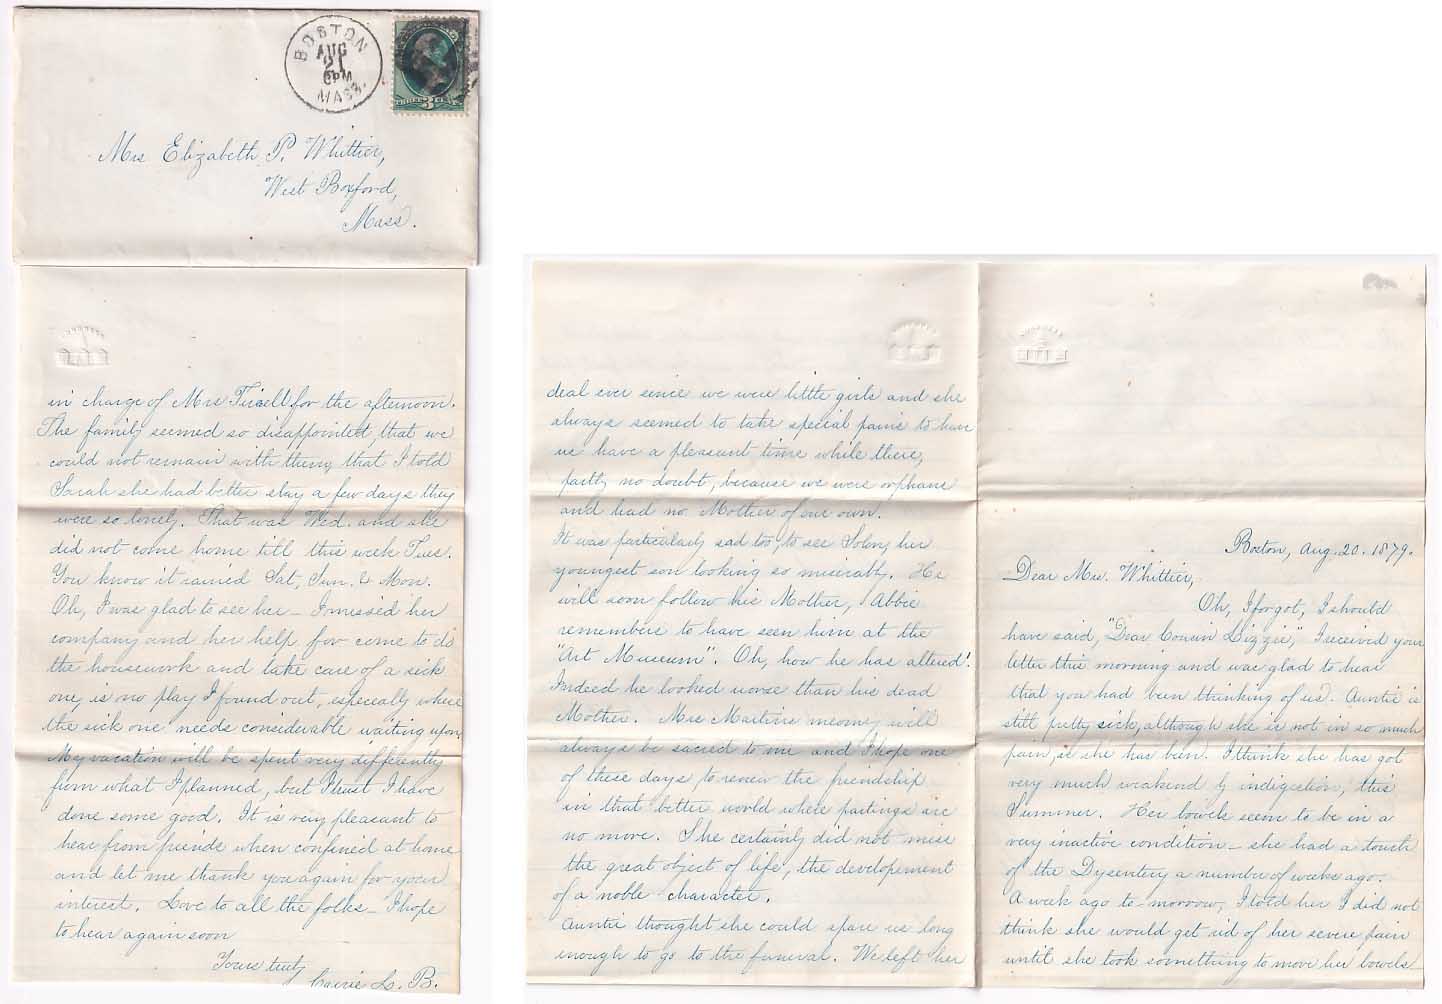 BOSTON
AUG
21
6PM
MASS.
THREE 3 CENTS
Mrs Elizabeth P. Whittier,
West Boxford,
Mass.
Boston, Aug. 20. 1879.
Dear Mrs. Whittier,
Oh, I forgot, I should
have said, "Dear Cousin Lizzie," I received your
letter this morning and was glad to hear
that you had been thinking of us. Auntie is
still pretty sick, although she is not in so much
pain, as she has been. I think she has got
very much weakend by indigestion, this
Summer. Her bowels seem to be in a
very inactive condition – she had a touch
of the Dysentery a number of weeks ago.
A week ago to-morrow, I told her I did not
think she would get rid of her severe pain
until she took something to move her bowels
deal ever since we were little girls and she
always seemed to take special pains to have
us have a pleasant time while there,
partly no doubt, because we were orphans
and had no Mother of our own.
It was particularly sad too, to see her
youngest son looking so miserably. He
will soon follow his Mother, Abbie
remembers to have seen him at the
"Art Museum". Oh, how he has altered!
Indeed he looked worse than his dead
Mother. Mrs Martins memory will
always be sacred to me and I hope one
of these days to renew the friendship
in that better world where partings are
no more. She certainly did not miss
the great object of life, the development
of a noble character.
Auntie thought she could spare us long
enough to go to the funeral. We left her
in charge of Mrs Tirrell for the afternoon.
The family seemed so disappointed that we
could not remain with them, that I told
Sarah she had better stay a few days they
were so lonely. That was Wed. and she
did not come home till this week Tues.
You know it rained Sat, Sun. & Mon.
Oh, I was glad to see her – I missed her
company and her help, for come to do
the housework and take care of a sick
one is no play I found out, especially where
the sick one needs considerable waiting upon.
My vacation will be spent very differently
from what I planned, but I trust I have
done some good. It is very pleasant to
hear from friends when confined at home
and let me thank you again for your
interest. Love to all the folks – I hope
to hear again soon
Yours truly
Carrie L. B.